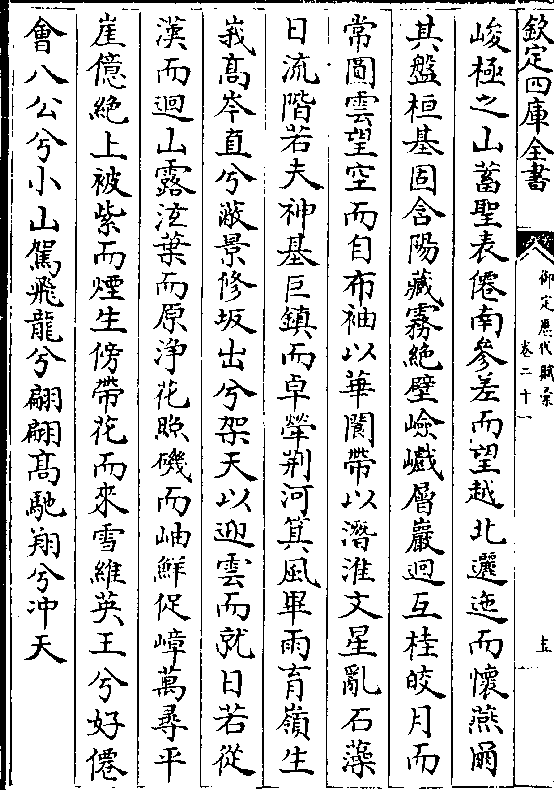 欽定四庫全書
御定歷代賦彙
卷二十一
五
峻極之山蓄聖表僊南參差而望越北邐迤而懷燕爾
其盤桓基固含陽藏霧絶壁嶮巇層巖迴互桂皎月而
常圓雲望空而自布袖以華閬帶以潛淮文星亂石藻
日流階若夫神基巨鎮而卓犖荆河箕風畢雨育嶺生
峩髙岑直兮蔽景修坂出兮架天以迎雲而就日若從
漢而迴山露泫葉而原淨花照磯而岫鮮促嶂萬尋平
崖億絶上被紫而煙生傍帶花而來雪維英王兮好僊
會八公兮小山駕飛龍兮翩翩髙馳翔兮冲天